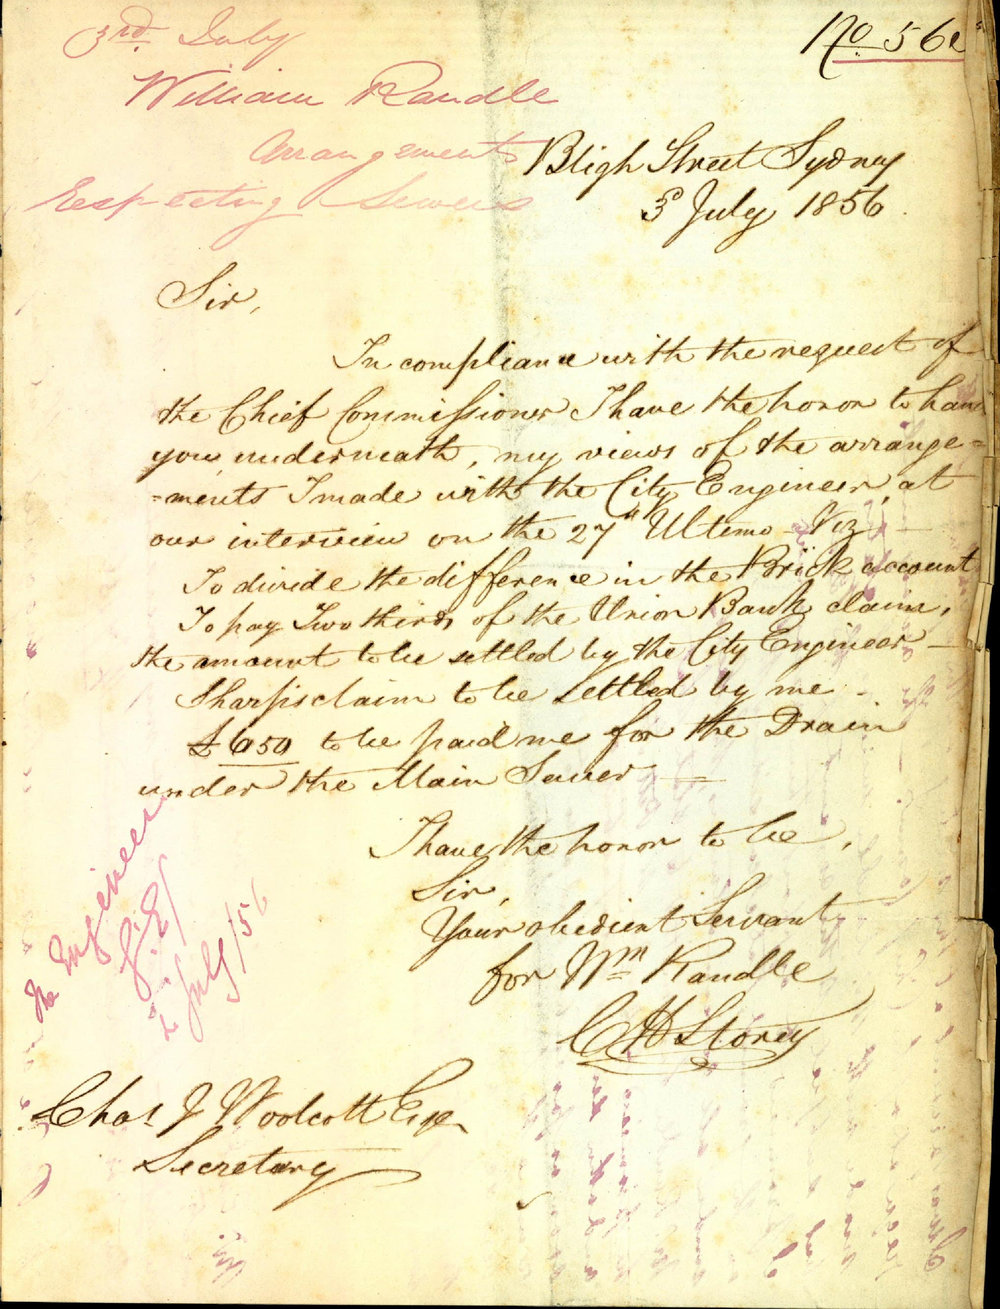 3rd July
William Randle
Arrangements
Respecting Sewers
No 56
Bligh Street Sydney
3d July 1856.
Sir,
In compliance with the request of
the Chief Commissioner I have the honor to hand
you underneath, my views of the arrange=
=ments I made with the City Engineer, at
our interview on the 27th Ultimo - Viz -
To divide the difference in the Brick account
To pay Two thirds of the Union Bank claim,
the amount to be settled by the City Engineer -
Sharps claim to be settled by me -
£650 to be paid me for the Drain
under the Main Sewer -
I have the honor to be,
Sir,
Your obedient Servant
for Wm Randle
C H Storey
The Engineer
July/56
Chas J Woolcott Esqr
Secretary